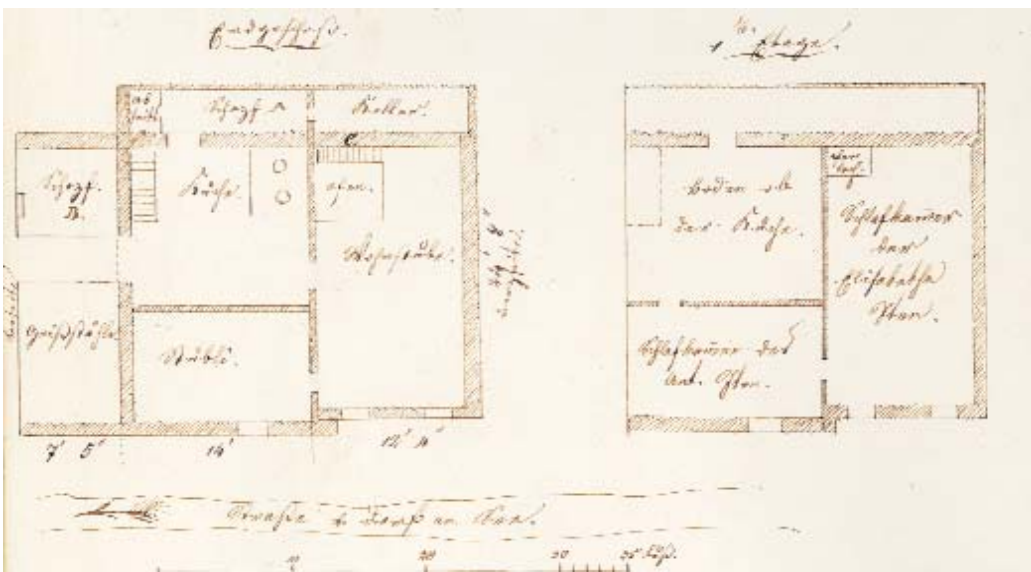 Erdgeschoß.
1te Etage.
Schopf A
Keller.
Schopf.
B.
Küche.
ofen.
Wohnstube.
Geißställe
Stübli.
7' 5"
14'
12' 4"
Boden ob
der Küche.
Schlafkammer
der
Elisabetha
Iten.
Schlafkammer des
Ant. Iten.
Straße
10
20
30
35 Fuß.